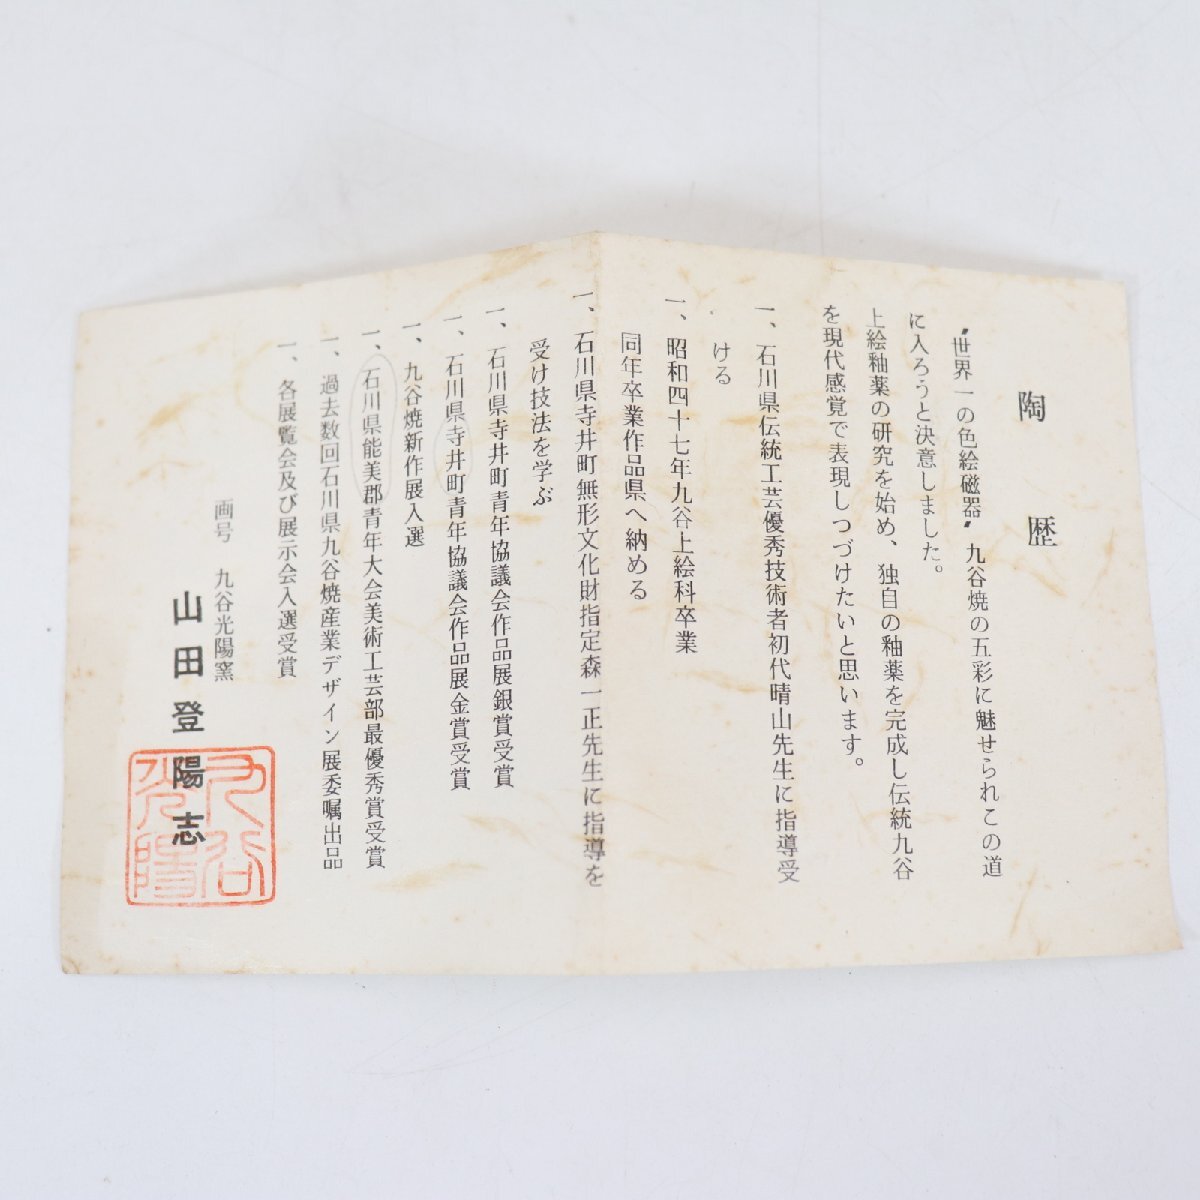 陶歴
〝世界一の色絵磁器〟九谷焼の五彩に魅せられこの道
に入ろうと決意しました。
上絵釉薬の研究を始め、独自の釉薬を完成し伝統九谷
を現代感覚で表現しつづけたいと思います。
一、石川県伝統工芸優秀技術者初代晴山先生に指導受
ける
一、昭和四十七年九谷上絵科卒業
同年卒業作品県へ納める
一、石川県寺井町無形文化財指定森一正先生に指導を
受け技法を学ぶ
一、石川県寺井町青年協議会作品展銀賞受賞
一、石川県寺井町青年協議会作品展金賞受賞
一、九谷焼新作展入選
一、石川県能美郡青年大会美術工芸部最優秀賞受賞
一、過去数回石川県九谷焼産業デザイン展委嘱出品
一、各展覧会及び展示会入選受賞
画号 九谷光陽窯
山田登陽志
九谷
光陽